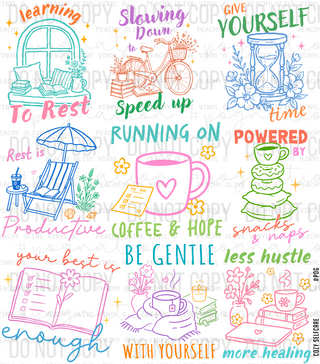 learning
To Rest
Slowing
Down
to
Speed up
GIVE
YOURSELF
time
Rest is
Productive
RUNNING ON
COFFEE & HOPE
POWERED
BY
snacks
& naps
your best is
enough
BE GENTLE
WITH YOURSELF
less hustle
more healing
#PDG
COZY SELFCARE
DO NOT COPY